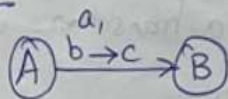 a,
b → c
A → B